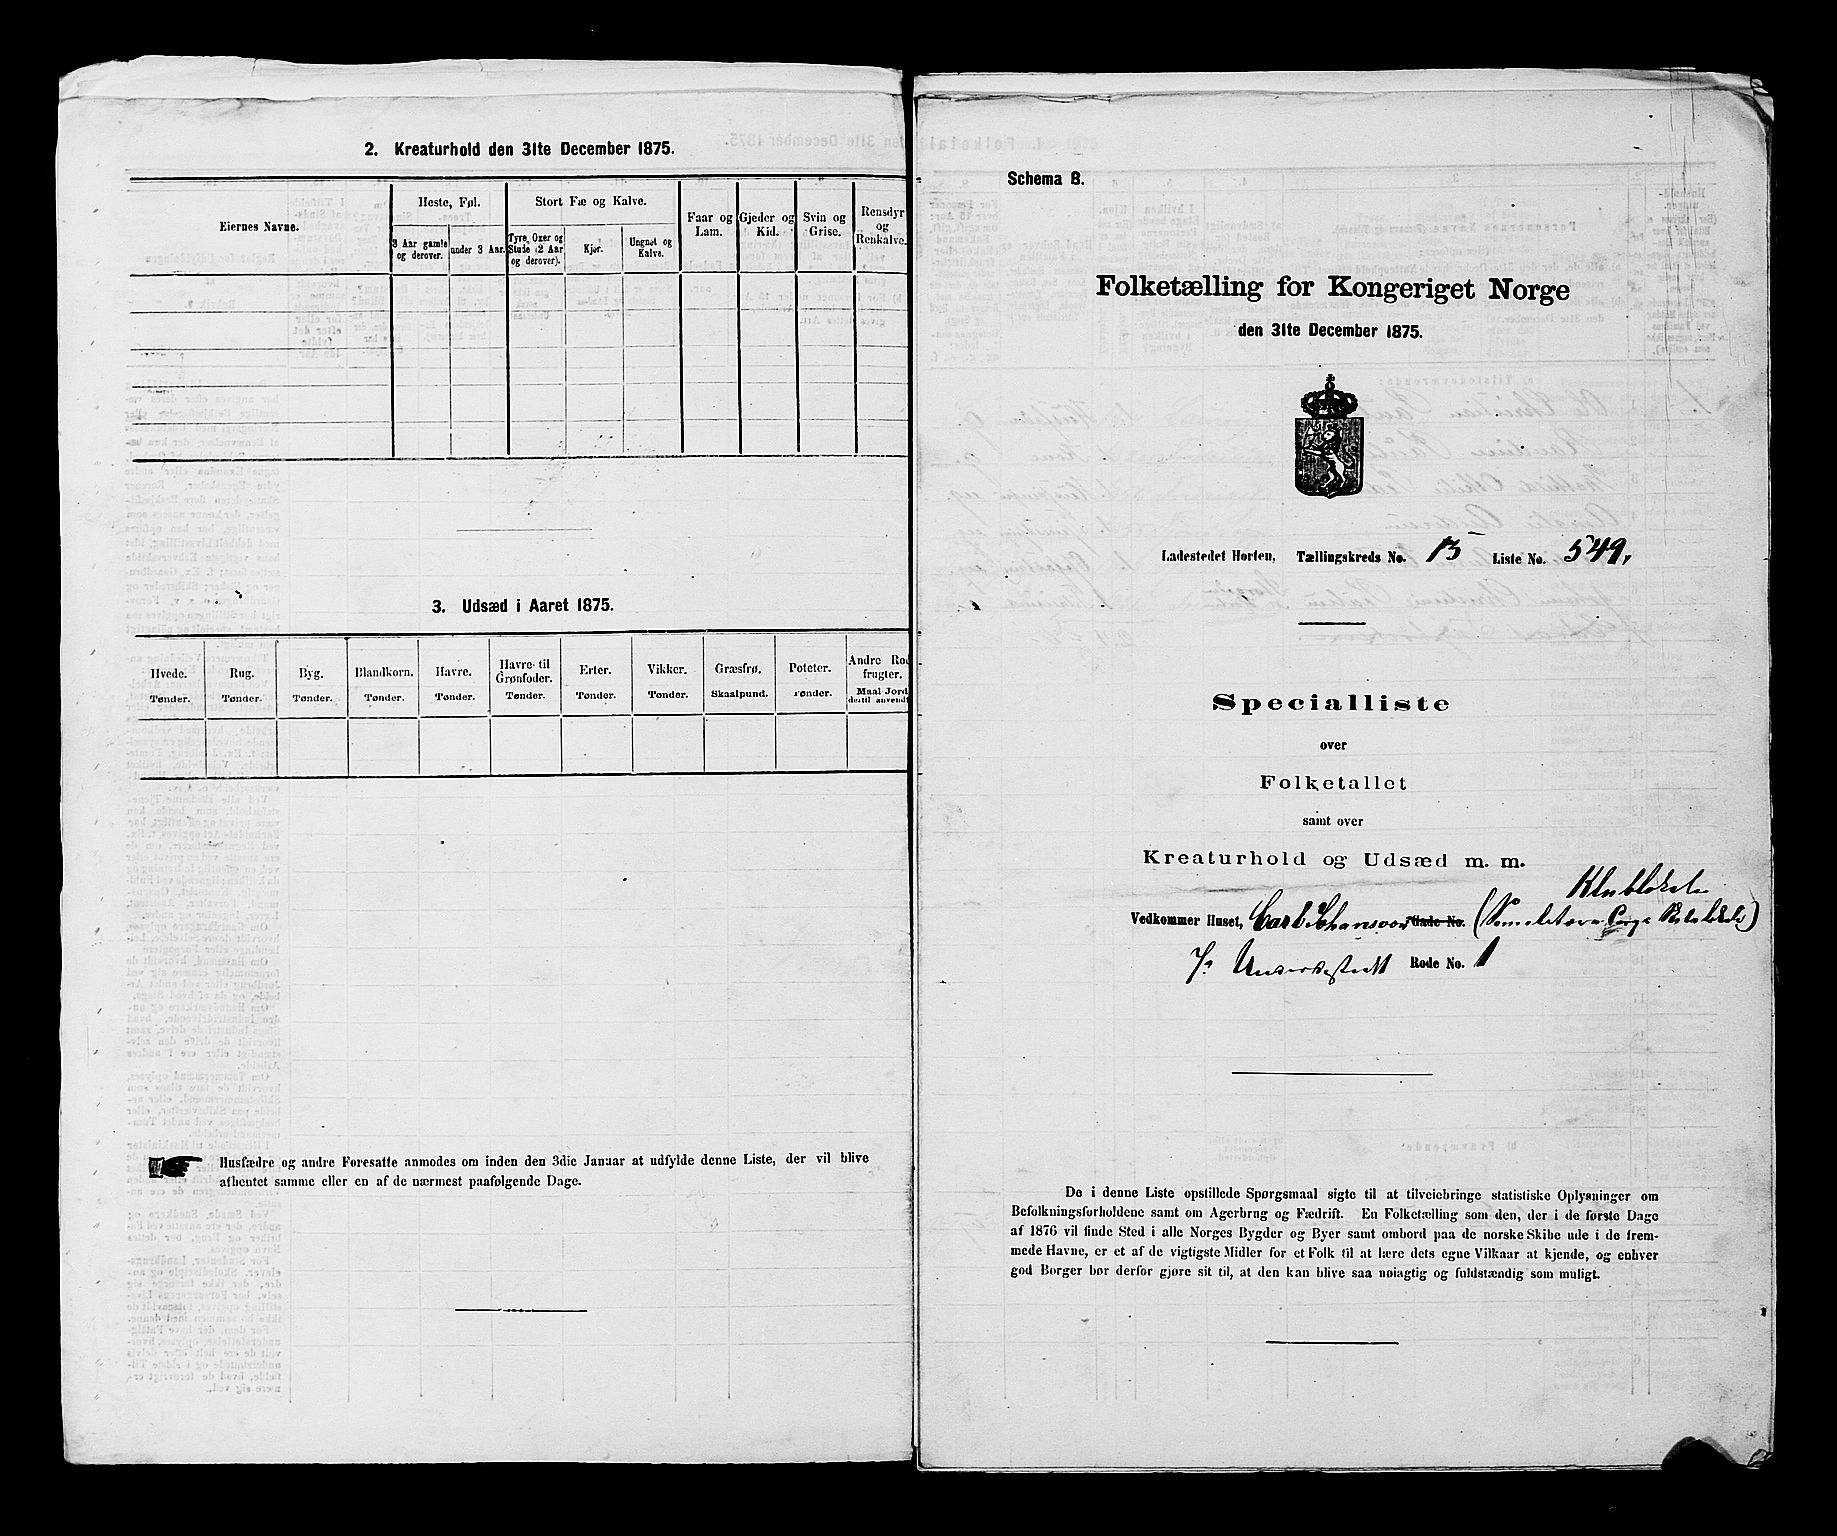 2. Kreaturhold den 31te December 1875.
Eiernes Navne.
Heste, Føl.
Stort Fæ og Kalve.
Faar og Lam.
Gjeder og Kid.
Svin og Grise.
Rensdyr og Renkalve.
3 Aar gamle og derover.
under 3 Aar.
Tyre, Oxer og Stude (2 Aar og derover).
Kjør.
Ungnøt og Kalve.
3. Udsæd i Aaret 1875.
Hvede. Rug. Byg. Blandkorn. Havre. Havre til Grønfoder. Erter. Vikker. Græsfrø. Poteter. Andre Rodfrugter.
Tønder. Tønder. Tønder. Tønder. Tønder. Tønder. Tønder. Tønder. Skaalpund. Tønder. Maal Jord dertil anvendt
Husfædre og andre Foresatte anmodes om inden den 3die Januar at udfylde denne Liste, der vil blive
afhentet samme eller en af de nærmest paafølgende Dage.
Schema B.
Folketælling for Kongeriget Norge
den 31te December 1875.
Ladestedet Horten, Tællingskreds No. 15 Liste No. 549,
Specialliste
over
Folketallet
samt over
Kreaturhold og Udsæd m. m.
Vedkommer Huset, Gade No.
Rode No. 1
De i denne Liste opstillede Spørgsmaal sigte til at tilveiebringe statistiske Oplysninger om
Befolkningsforholdene samt om Agerbrug og Fædrift. En Folketælling som den, der i de første Dage
af 1876 vil finde Sted i alle Norges Bygder og Byer samt ombord paa de norske Skibe ude i de frem-
mede Havne, er et af de vigtigste Midler for et Folk til at lære dets egne Vilkaar at kjende, og enhver
god Borger bør derfor gjøre sit til, at den kan blive saa nøiagtig og fuldstændig som muligt.